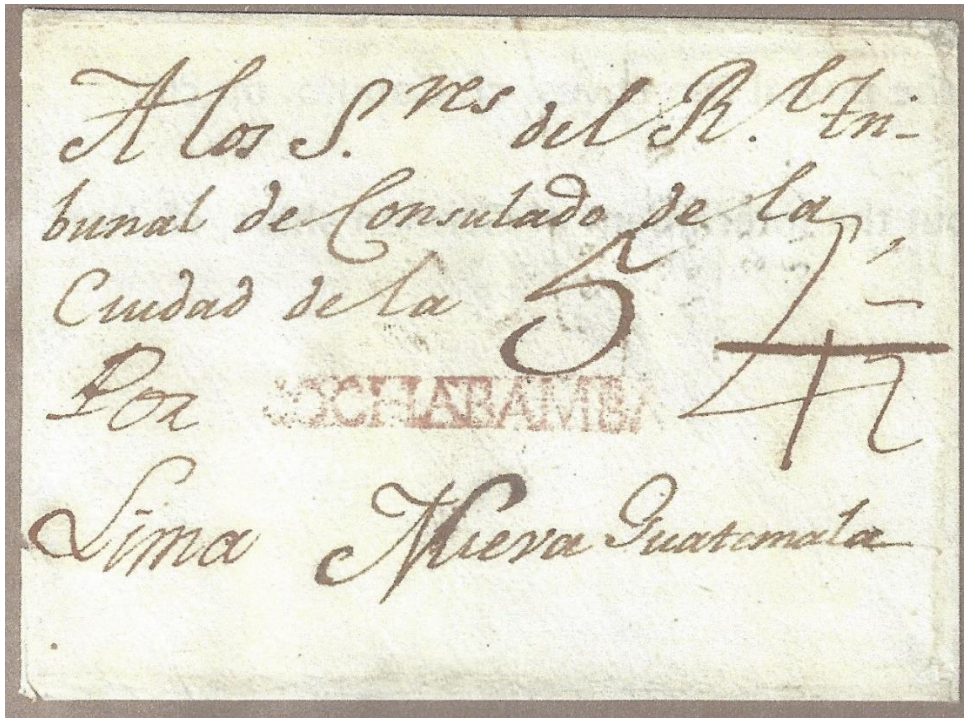 A los S.res del R.l Tri-
bunal de Consulado de la
Ciudad de la 5
Por COCHABAMBA
Lima Nueva Guatemala